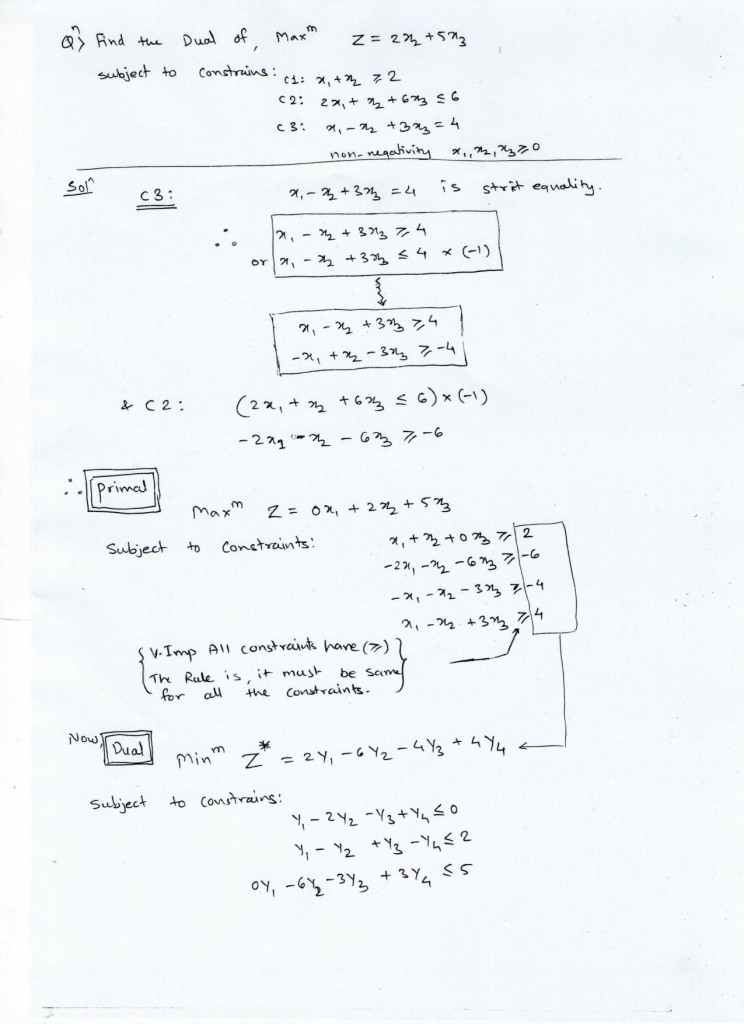 Qⁿ> Find the Dual of, Maxᵐ Z = 2x₂ + 5x₃
subject to constrains: C1: x₁ + x₂ ≥ 2
C2: 2x₁ + x₂ + 6x₃ ≤ 6
C3: x₁ - x₂ + 3x₃ = 4
non-negativity x₁, x₂, x₃ ≥ 0
Solⁿ C3: x₁ - x₂ + 3x₃ = 4 is strit equality.
∴ x₁ - x₂ + 3x₃ ≥ 4
or x₁ - x₂ + 3x₃ ≤ 4 × (-1)
x₁ - x₂ + 3x₃ ≥ 4
-x₁ + x₂ - 3x₃ ≥ -4
& C2: (2x₁ + x₂ + 6x₃ ≤ 6) × (-1)
-2x₁ - x₂ - 6x₃ ≥ -6
∴ Primal
Maxᵐ Z = 0x₁ + 2x₂ + 5x₃
Subject to Constraints: x₁ + x₂ + 0x₃ ≥ 2
-2x₁ - x₂ - 6x₃ ≥ -6
-x₁ - x₂ - 3x₃ ≥ -4
x₁ - x₂ + 3x₃ ≥ 4
{ V.Imp All constraints have (≥) }
The Rule is, it must be same
for all the constraints.
Now, Dual Minᵐ Z* = 2Y₁ - 6Y₂ - 4Y₃ + 4Y₄
Subject to constrains:
Y₁ - 2Y₂ - Y₃ + Y₄ ≤ 0
Y₁ - Y₂ + Y₃ - Y₄ ≤ 2
0Y₁ - 6Y₂ - 3Y₃ + 3Y₄ ≤ 5